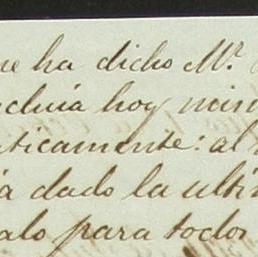 ue ha dicho Mr.
cluia hoy
ticamente: al
a dado la ulti
alo para todos